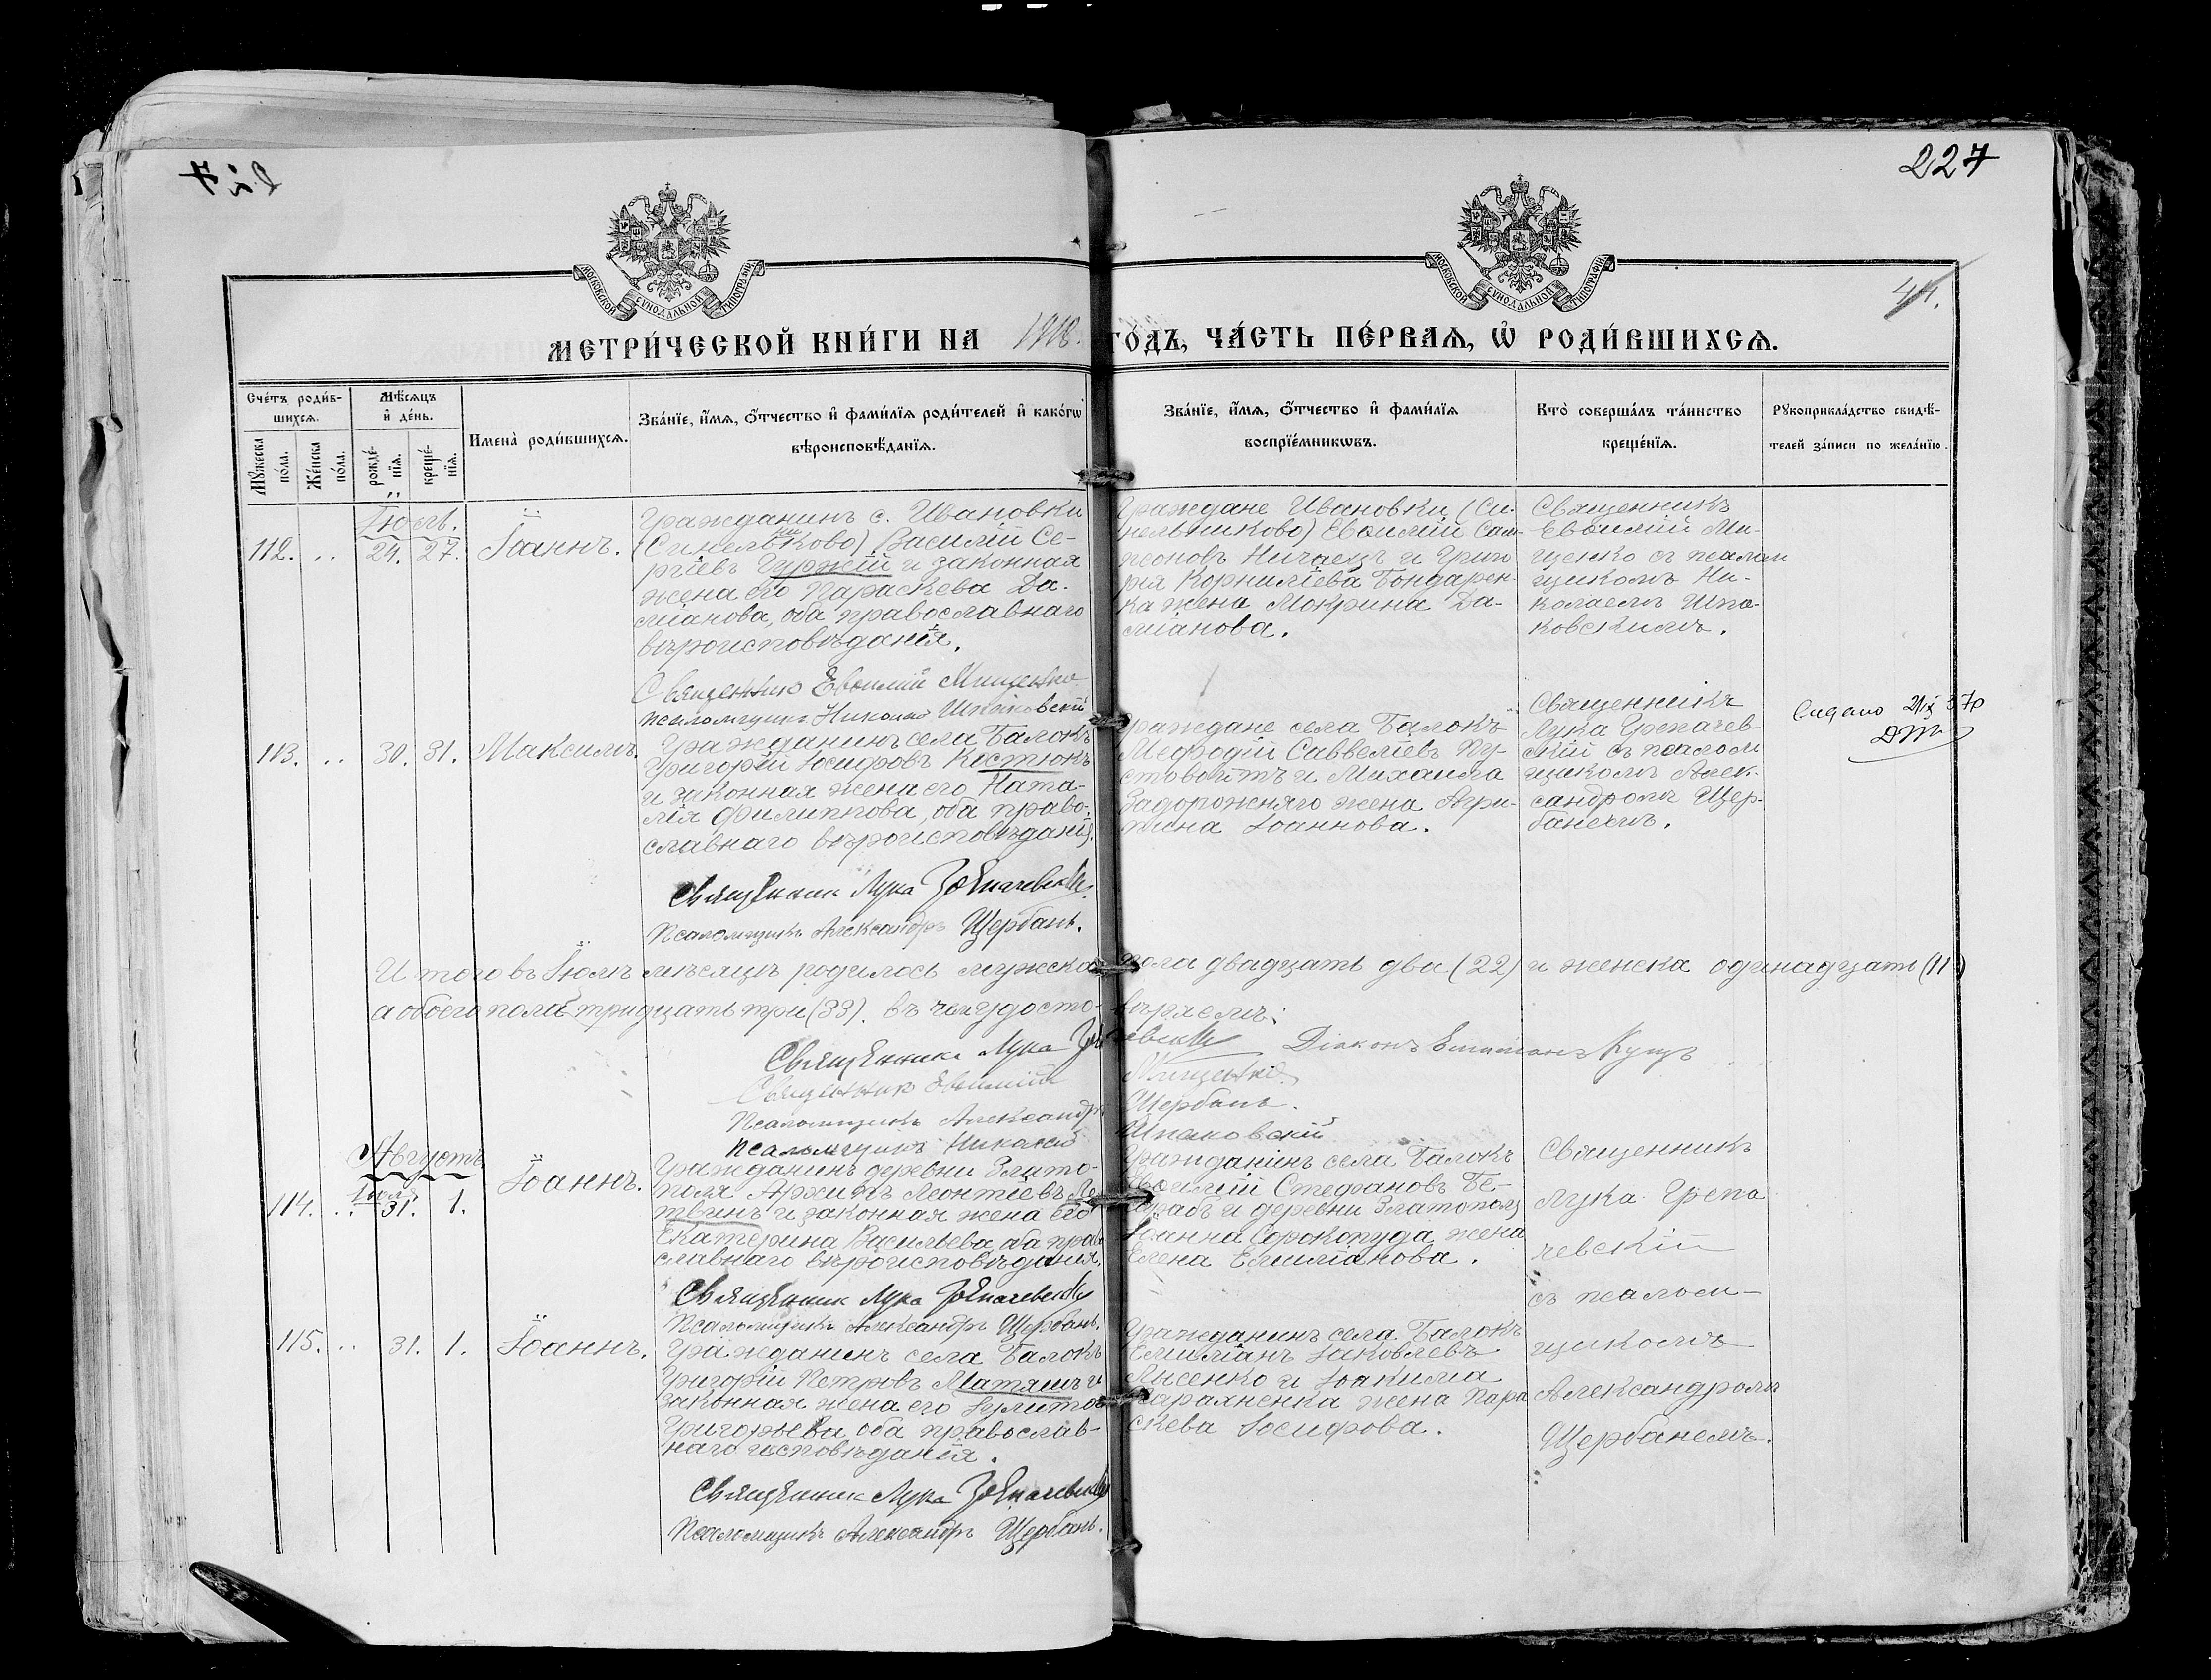 227
МОСКОВСКОЙ СѴНОДАЛЬНОЙ ТИПОГРАФІИ
МОСКОВСКОЙ СѴНОДАЛЬНОЙ ТИПОГРАФІИ
41.
МЕТРИ́ЧЕСКОЙ КНИ́ГИ НА 1918. ГО́ДЪ, ЧА́СТЬ ПЕ́РВАѦ, Ѡ҆ РОДИ́ВШИХСѦ.
Сче́тъ роди́в-
шихсѧ.
Мꙋ́жеска по́ла.
Же́нска по́ла.
Мѣ́сѧцъ
и҆ де́нь.
рожде́-
нїѧ.
креще́-
нїѧ.
Имена̀ роди́вшихсѧ.
Зва́нїе, и҆́мѧ, ѻ҆́тчество и҆ фами́лїѧ роди́телей и҆ како́гѡ
вѣроисповѣ́данїѧ.
Зва́нїе, и҆́мѧ, ѻ҆́тчество и҆ фами́лїѧ
воспрїе́мникѡвъ.
Кто̀ соверша́лъ та́инство
креще́нїѧ.
Рꙋкоприкла́дство свидѣ́-
телей за́писи по жела́нїю.
Іюль.
112. .. 24. 27. Іоаннъ.
Гражданинъ с. Ивановки
(Синельниково) Василій Се-
ргіевъ Гуржій и законная
жена его Параскева Да-
міанова, оба православнаго
вѣроисповѣданія.
Священникъ Евѳимій Мищенко
Псаломщикъ Николай Шпаковскій
Граждане Ивановки (Си-
нельниково) Евѳимій Сам-
псоновъ Ничаецъ и Григо
рія Корниліева Бондарен-
ка жена Мокрина Да-
міанова.
Священникъ
Евѳимій Ми-
щенко съ псалом
щикомъ Ни-
колаемъ Шпа-
ковскимъ.
113. .. 30. 31. Максимъ.
Гражданинъ села Балокъ
Григорій Іосифовъ Костюкъ
и законная жена его Ната-
лія Филиппова, оба право-
славнаго вѣроисповѣданія.
Священник Лука Грепачевскій
Псаломщикъ Александръ Щербань.
Граждане села Балокъ
Меѳодій Саввеліевъ Пу-
стовойтъ и Михаила
Задорожняго жена Агри-
пина Іоаннова.
Священникъ
Лука Грепачев-
скій съ псалом
щикомъ Алек-
сандромъ Щер-
банемъ.
Видано 37р
Итого въ Іюлѣ мѣсяцѣ родилось мужска пола двадцать два (22) и женска одинадцать (11)
а обоего пола тридцать три (33). въ чемъ удосто-вѣряемъ:
Священникъ Лука Грепачевскій Діаконъ Куцъ
Священникъ Евѳимій Мищенко
Псаломщикъ Александръ Щербань.
Псаломщикъ Николай Шпаковскій
Августъ
Іюль
114. .. 31. 1. Іоаннъ.
Гражданинъ деревни Злато-
поля Архипъ Леонтіевъ Ле
твинъ и законная жена его
Екатерина Васильева, оба право
славнаго вѣроисповѣданія.
Священник Лука Грепачевскій
Псаломщикъ Александръ Щербань.
Гражданинъ села Балокъ
Евѳимій Стефановъ Бе-
и деревни Златополя
Іоанна Сорокопуда жена
Елена Емиліанова.
Священникъ
Лука Грепа
чевскій
съ псалом-
щикомъ
Александромъ
Щербанемъ.
115. .. 31. 1. Іоаннъ.
Гражданинъ села Балокъ
Григорій Петровъ Маташъ и
законная жена его Іулитта
Григорьева, оба православ-
наго исповѣданія.
Священник Лука Грепачевскій
Псаломщикъ Александръ Щербань.
Гражданинъ села Балокъ
Емиліанъ Іаковлевъ
Лысенко и Іоакима
жена Пара
скева Іосифова.